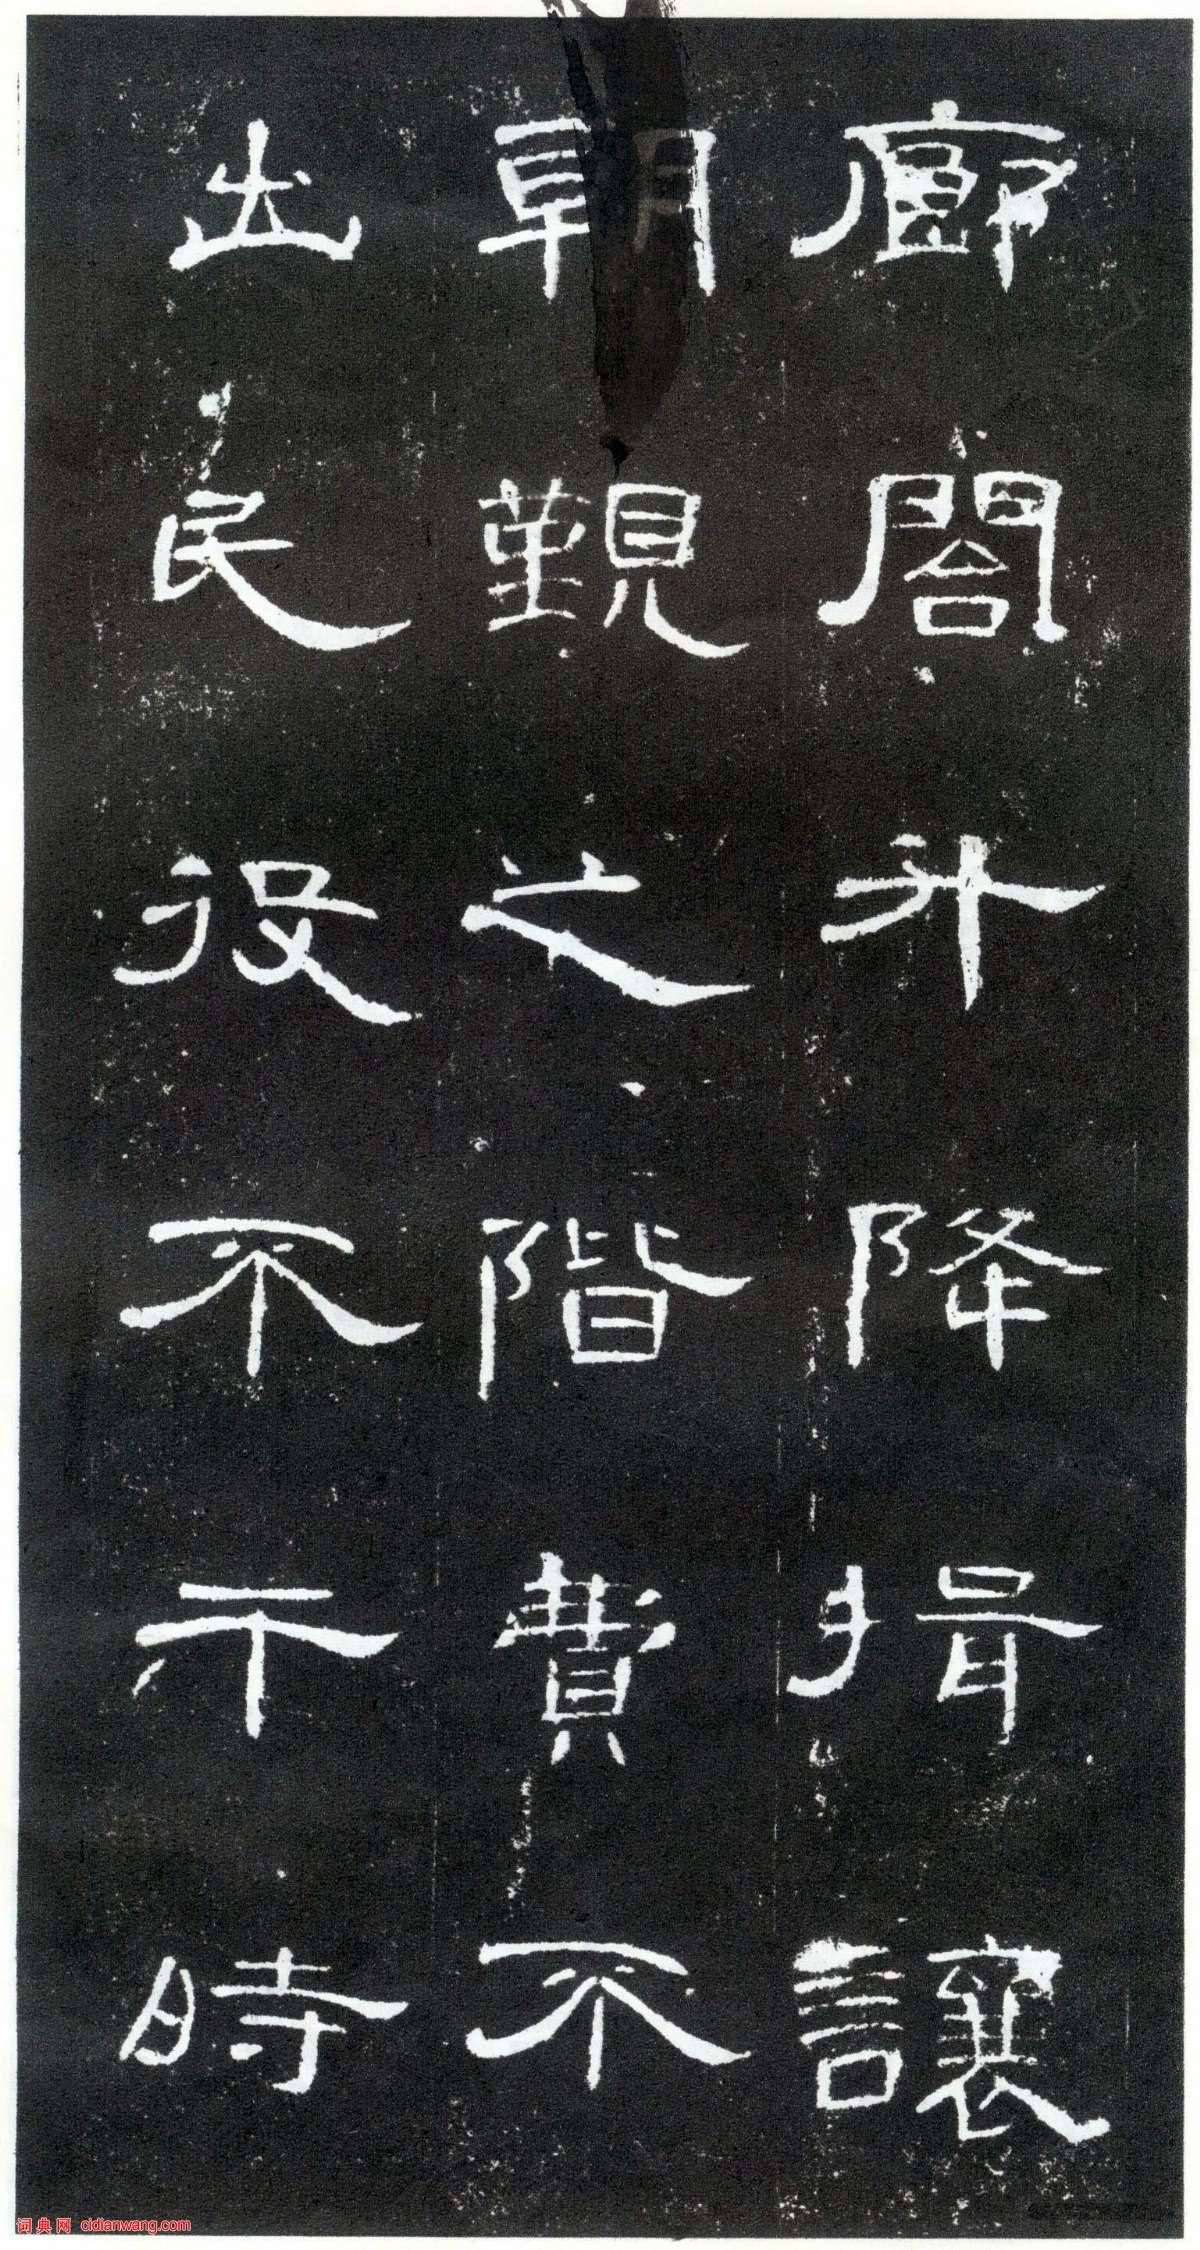 廊閣升降揖讓
朝覲之階費不
出民役不干時
词典网 cidianwang.com